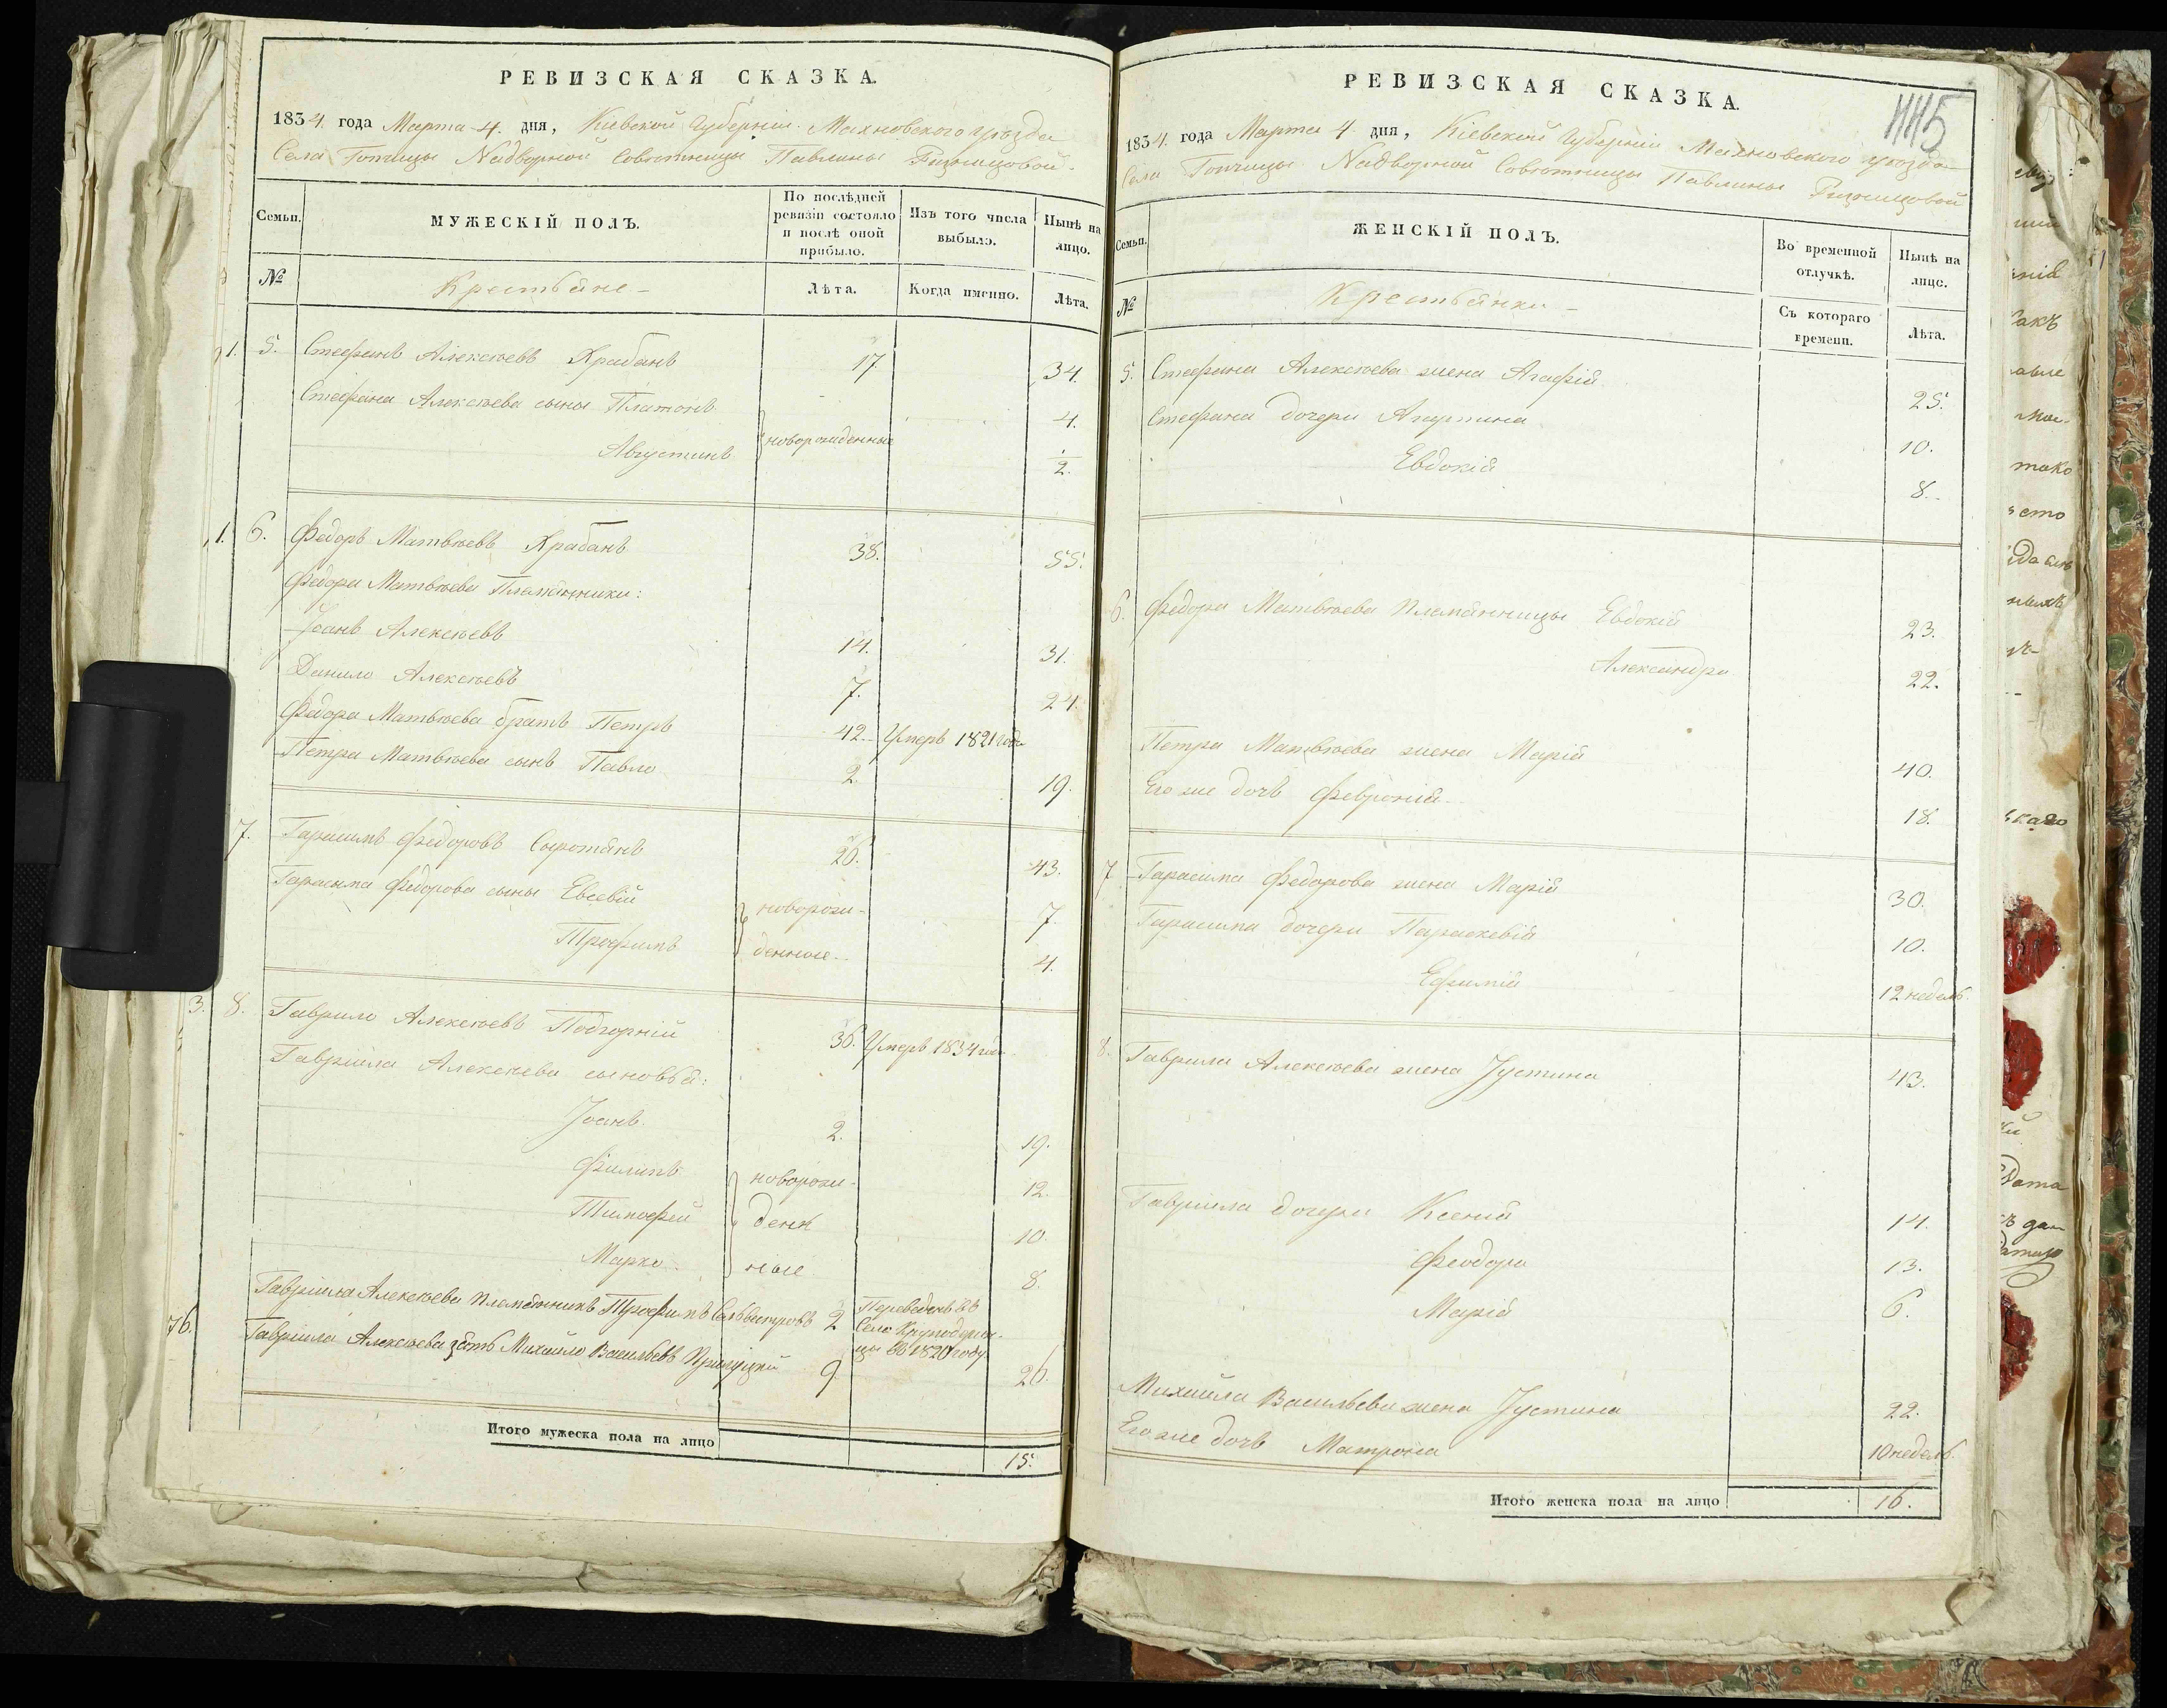 РЕВИЗСКАЯ СКАЗКА.
1834. года Марта 4. дня, Кіевской Губерніи Махновского уѣзда
Села Топчицы Надворной Совѣтницы Павлины
Семьи.
МУЖЕСКІЙ ПОЛЪ.
По послѣдней ревизіи состояло и послѣ оной прибыло.
Изъ того числа выбыло.
Нынѣ на лицо.
№
Крестьяне
Лѣта.
Когда именно.
Лѣта.
1. 5. Стефанъ Алексѣевъ Храбанъ 17. 34.
Стефана Алексѣева сыны Платонъ 4.
новорожденные
Августинъ 1/2.
1. 6. Федоръ Матвѣевъ Храбанъ 38. 55.
Федора Матвѣева Племянники:
Іоанъ Алексѣевъ 14. 31.
Данило Алексѣевъ 7. 24.
Федора Матвѣева братъ Петръ 42. Умеръ 1821 года
Петра Матвѣева сынъ Павло 2. 19.
7. Гарасимъ Федоровъ Сыротянъ 26. 43.
Гарасима Федорова сыны Евсевій новорож- 7.
Трофимъ денные 4.
3. 8. Гаврило Алексѣевъ Подгорній 36. Умеръ 1834 года
Гавріила Алексѣева сыновья:
Іоанъ 2. 19.
Филипъ новорож- 12.
Тимофей ден 10.
Марко ные 8.
Гавріила Алексѣева племянникъ Трофимъ Сильвестровъ 2 Переведенъ въ
Село
въ 1820 году
76. Гавріила Алексѣева зять Михайло Васильевъ 9. 26.
Итого мужеска пола на лицо 15.
РЕВИЗСКАЯ СКАЗКА.
1834. года Марта 4 дня, Кіевской Губерніи Махновского уѣзда
Села Топчицы Надворной Совѣтницы Павлины
Семьи.
ЖЕНСКІЙ ПОЛЪ.
Во временной отлучкѣ.
Нынѣ на лицо.
№
Крестьянки
Съ котораго времени.
Лѣта.
5. Стефана Алексѣева жена Агафія 25.
Стефана дочери Агрипина 10.
Евдокія 8.
6. Федора Матвѣева племянницы Евдокія 23.
Александра 22.
Петра Матвѣева жена Марія 40.
Его же дочь Февронія 18.
7. Гарасима Федорова жена Марія 30.
Гарасима дочери Параскевія 10.
Ефимія 12 недель.
8. Гаврила Алексѣева жена Іустина 43.
Гавріила дочери Ксенія 14.
Феодора 13.
Марія 6.
Михайла Васильева жена Іустина 22.
Его же дочь Матрона 10 недель.
Итого женска пола на лицо 16.